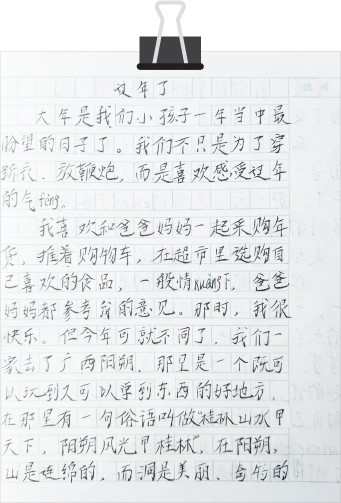 过年了
大年是我们小孩子一年当中最
盼望的日子了。我们不只是为了穿
新衣、放鞭炮,而是喜欢感受过年
的气fēng。
我喜欢和爸爸妈妈一起采购年
货,推着购物车,在超市里选购自
己喜欢的食品,一般情kuàng下,爸爸
妈妈都参考我的意见。那时,我很
快乐。但今年可就不同了,我们一
家去了广西阳朔,那里是一个既可
以玩到又可以学到东西的好地方,
在那里有一句俗语叫做"桂林山水甲
天下,阳朔风光甲桂林",在阳朔,
山是连绵的,而洞是美丽、含钙的